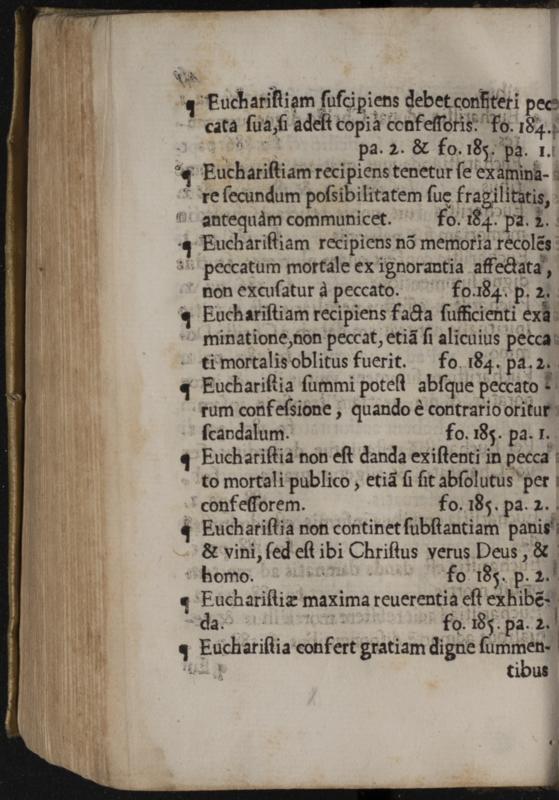 ¶ Euchariſtiam ſuſcipiens debet confiteri pec
cata ſua,ſi adeſt copia cõfeſſoris. fo. 184.
pa. 2. & fo. 185. pa. 1.
¶ Euchariſtiam recipiens tenetur ſe examina-
re ſecundum poſsibilitatem ſuę fragilitatis,
antequàm communicet. fo. 184. pa. 2.
¶ Euchariſtiam recipiens nõ memoria recolẽs
peccatum mortale ex ignorantia affectata,
non excuſatur à peccato. fo.184. p. 2.
¶ Euchariſtiam recipiens facta ſufficienti exa
minatione,non peccat, etiã ſi alicuius pecca
ti mortalis oblitus fuerit. fo 184. pa. 2.
¶ Euchariſtia ſummi poteſt abſque peccato -
rum confeſsione, quando è contrario oritur
ſcandalum. fo. 185. pa. 1.
¶ Euchariſtia non eſt danda exiſtenti in pecca
to mortali publico, etiã ſi ſit abſolutus per
confeſſorem. fo. 185. pa. 2.
¶ Euchariſtia non continet ſubſtantiam panis
& vini, ſed eſt ibi Chriſtus verus Deus, &
homo. fo 185. p. 2.
¶ Euchariſtiæ maxima reuerentia eſt exhibẽ-
da. fo. 185. pa. 2.
¶ Euchariſtia confert gratiam digne ſummen-
tibus